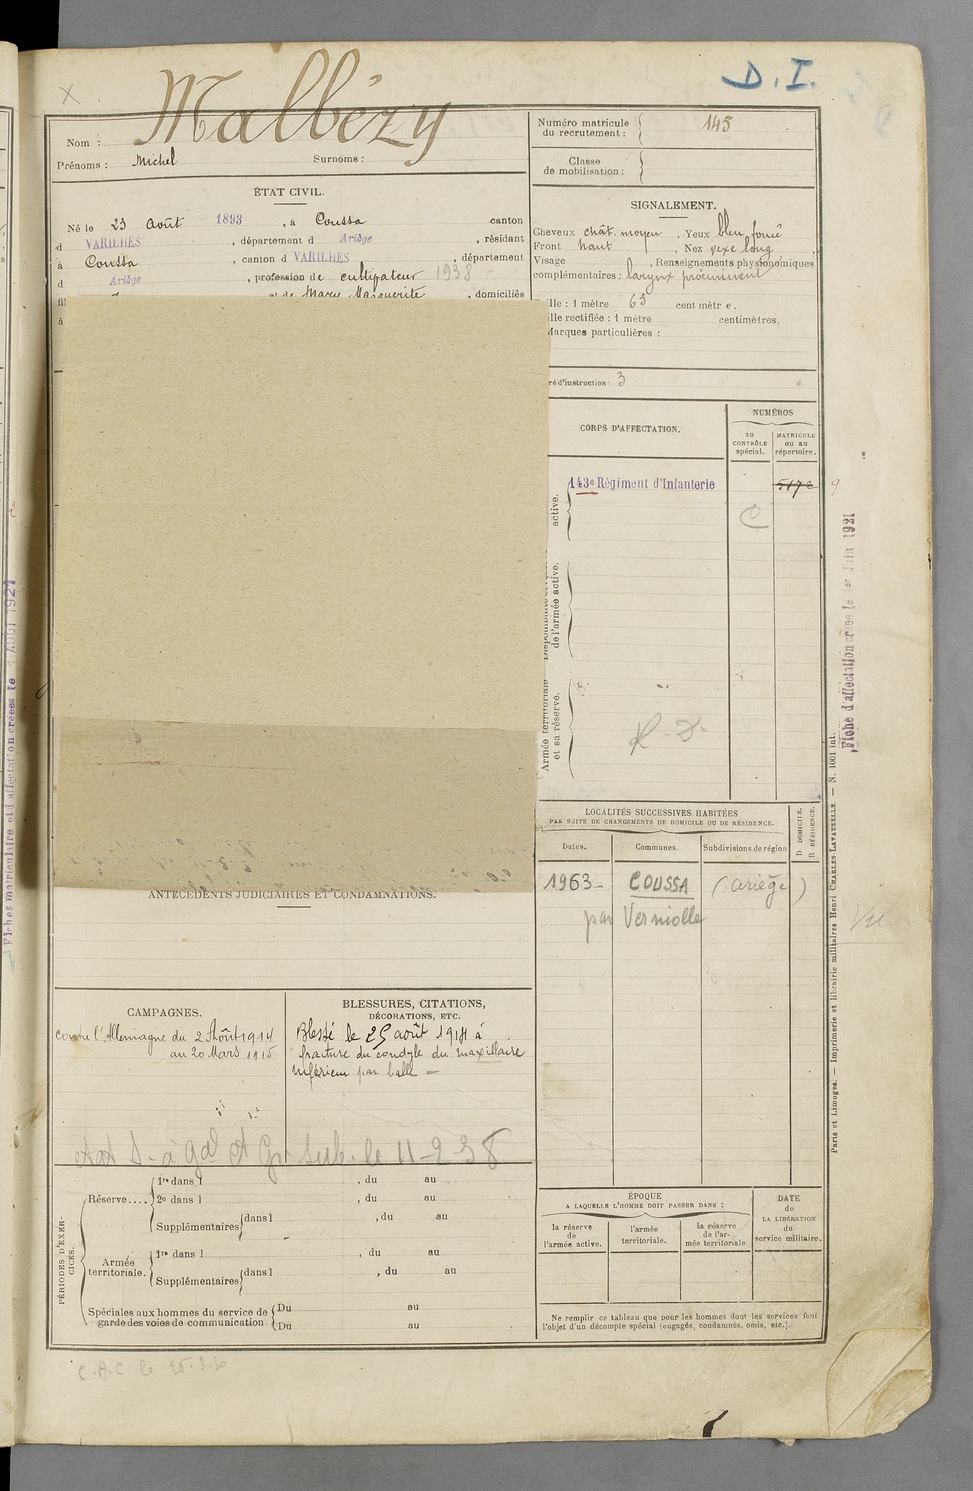 D. I.
Malbézy
Nom :
Prénoms : Michel Surnoms :
Numéro matricule du recrutement : 145
Classe de mobilisation :
ÉTAT CIVIL.
Né le 23 Août 1893, à Coussa canton
d VARILHES, département d Ariège, résidant
à Coussa, canton d VARILHES, département
d Ariège, profession de cultivateur 1938
et de Mary Marguerite, domiciliés
à
SIGNALEMENT.
Cheveux chât. moyen, Yeux bleu foncé
Front haut, Nez vexe long,
Visage, Renseignements physionomiques
complémentaires : larynx proéminent
ille : 1 mètre 65 centimètre.
ille rectifiée : 1 mètre centimètres.
Marques particulières :
ré d'instruction : 3
CORPS D'AFFECTATION.
NUMÉROS
au CONTRÔLE spécial.
MATRICULE ou au répertoire.
143e Régiment d'Infanterie 5172
active.
de l'armée active.
Armée territoriale et sa réserve.
R. D.
Fiche d'affectation créée le 1er Juin 1921
Fiches matriculaire et d'affectation créées le 1 AOUT 1921
LOCALITÉS SUCCESSIVES HABITÉES
PAR SUITE DE CHANGEMENTS DE DOMICILE OU DE RÉSIDENCE.
D DOMICILE.
R RÉSIDENCE.
Dates. Communes. Subdivisions de région
1963 - COUSSA (Ariège)
par Verniolle
Vu
ANTÉCÉDENTS JUDICIAIRES ET CONDAMNATIONS.
CAMPAGNES.
Contre l'Allemagne du 2 Août 1914
au 20 Mars 1915
BLESSURES, CITATIONS,
DÉCORATIONS, ETC.
Blessé le 25 août 1914 à
fracture du condyle du maxillaire
inférieur par balle -
le 11-2-38
PÉRIODES D'EXERCICES.
Réserve.... 1re dans l, du au
2e dans l, du au
Supplémentaires dans l, du au
Armée territoriale. 1re dans l, du au
Supplémentaires dans l, du au
Spéciales aux hommes du service de garde des voies de communication Du au
Du au
ÉPOQUE
A LAQUELLE L'HOMME DOIT PASSER DANS :
la réserve de l'armée active.
l'armée territoriale.
la réserve de l'armée territoriale.
DATE de LA LIBÉRATION du service militaire.
Ne remplir ce tableau que pour les hommes dont les services font
l'objet d'un décompte spécial (engagés, condamnés, omis, etc.).
Paris et Limoges. — Imprimerie et librairie militaires Henri CHARLES-LAVAUZELLE. — N. 1001 int.
C.A.C le 25.3.30